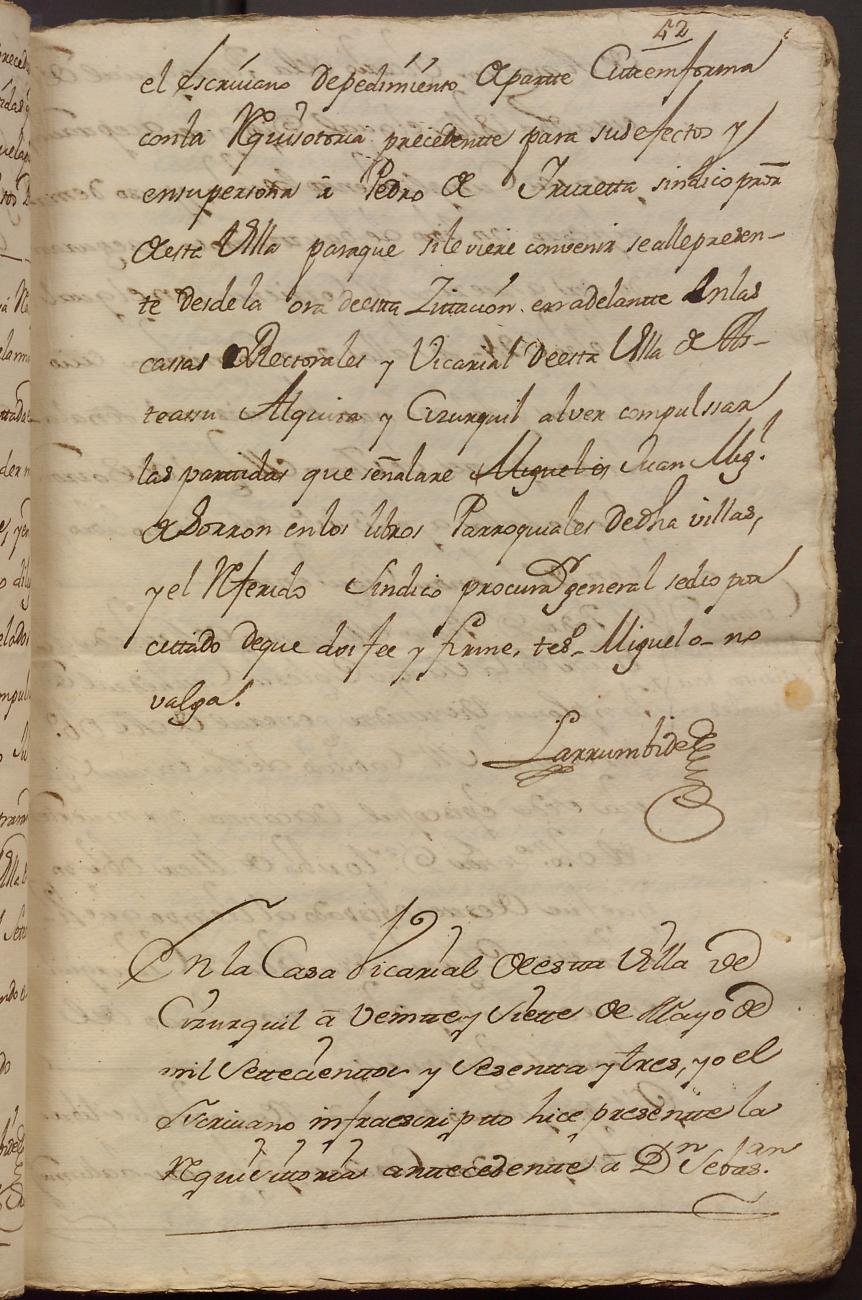 42
el Escriuano depedimiento de partte Cite en forma
con la Requisotoria precedentte para sus efectos y
en su persona à Pedro de Irureta sindico pror
de esta Villa para que si le viere convenir se alle presen-
te desde la ora de esta Zittacion en adelantte en las
cassas Rectorales y Vicarial de esta Villa de As-
teassu Alquiza y Cizurquil al ver compulssar
las partidas que señalare Miguel os Juan Migl
de Sorron en los libros Parroquiales de dha villas,
y el Referido Sindico procurador general se dio por
cittado de que doi fee y firme, tesdo- Miguel o- no
valga.
Larrumbide
En la Casa Vicarial de esta Villa de
Cizurquil à veintte y Siette de Mayo de
mil Settecientos y Sesentta y tres, yo el
Escriuano infraescriptto hice presentte la
Requisittoria anttecedentte à Dn Sebasan